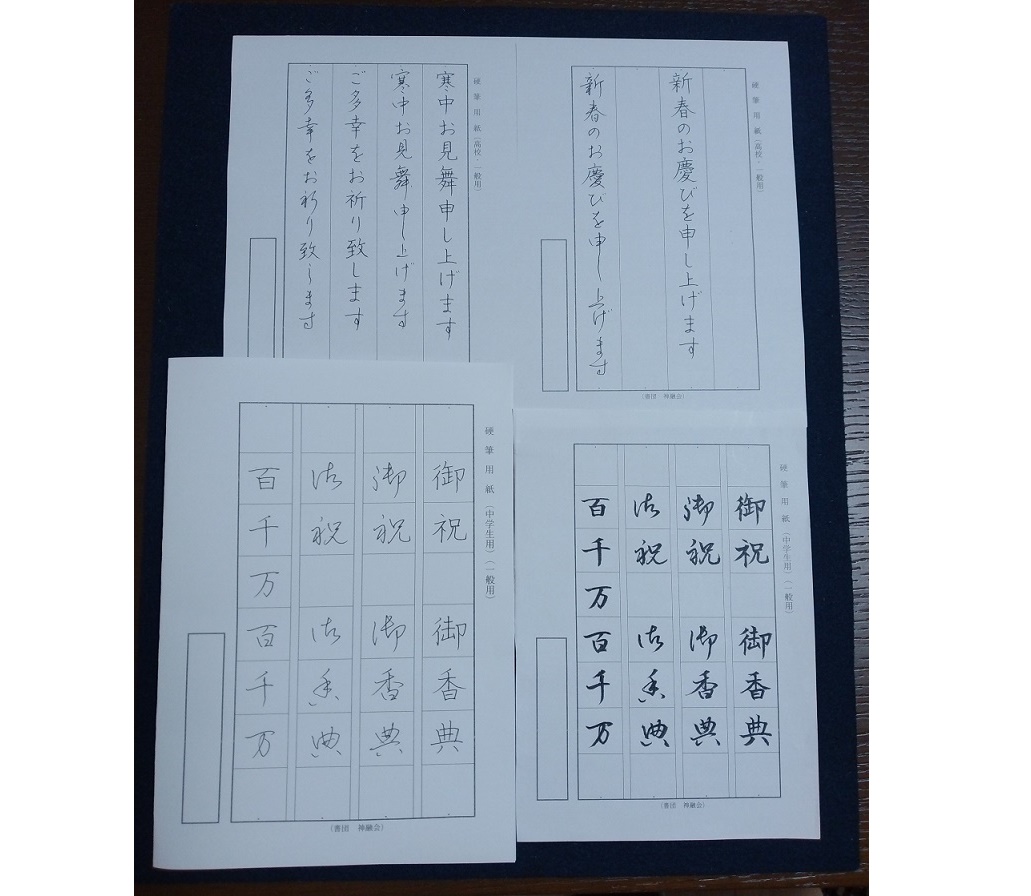 硬筆用紙(高校・一般用)
新春のお慶びを申し上げます
新春のお慶びを申し上げます
(書団 神融会)
硬筆用紙(高校・一般用)
寒中お見舞申し上げます
寒中お見舞申し上げます
ご多幸をお祈り致します
ご多幸をお祈り致します
硬筆用紙(中学生用)(一般用)
御祝 御香典
御祝 御香典
御祝 御香典
百千万百千万
(書団 神融会)
硬筆用紙(中学生用)(一般用)
御祝 御香典
御祝 御香典
御祝 御香典
百千万百千万
(書団 神融会)